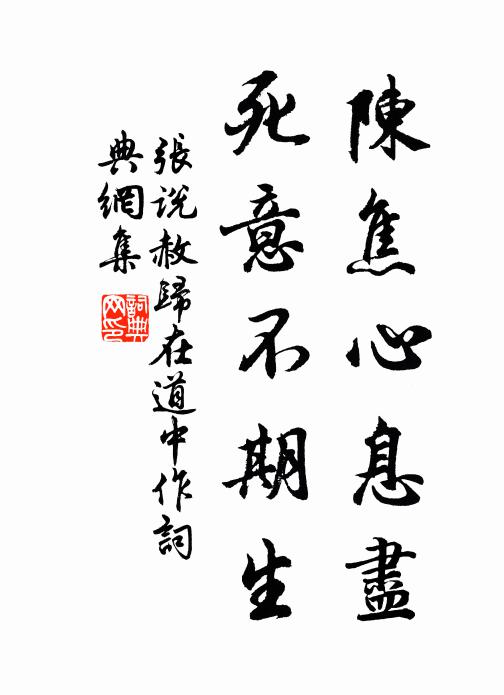 陳焦心息盡
死意不期生
張說赦歸在道中作詞
典網集
詞典網印